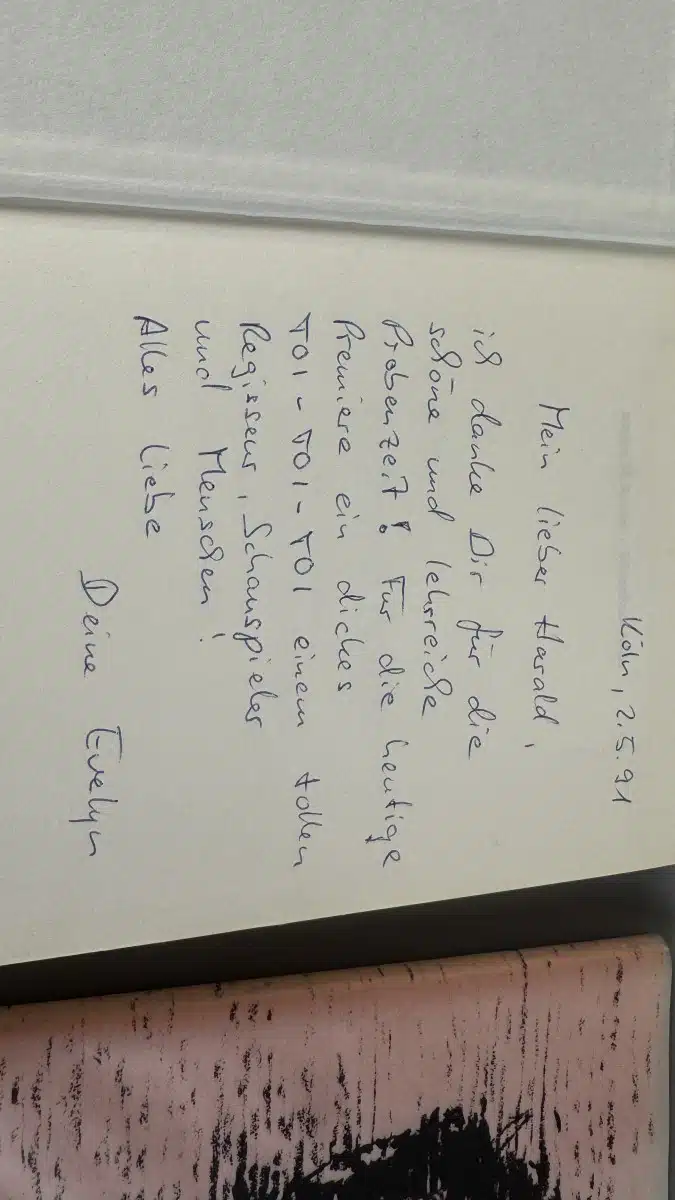 Köln, 2.5.91
Mein lieber Harald,
ich danke Dir für die
schöne und lehrreiche
Probenzeit! Für die heutige
Premiere ein dickes
TOI-TOI-TOI einem tollen
Regisseur, Schauspieler
und Menschen!
Alles Liebe
Deine Evelyn